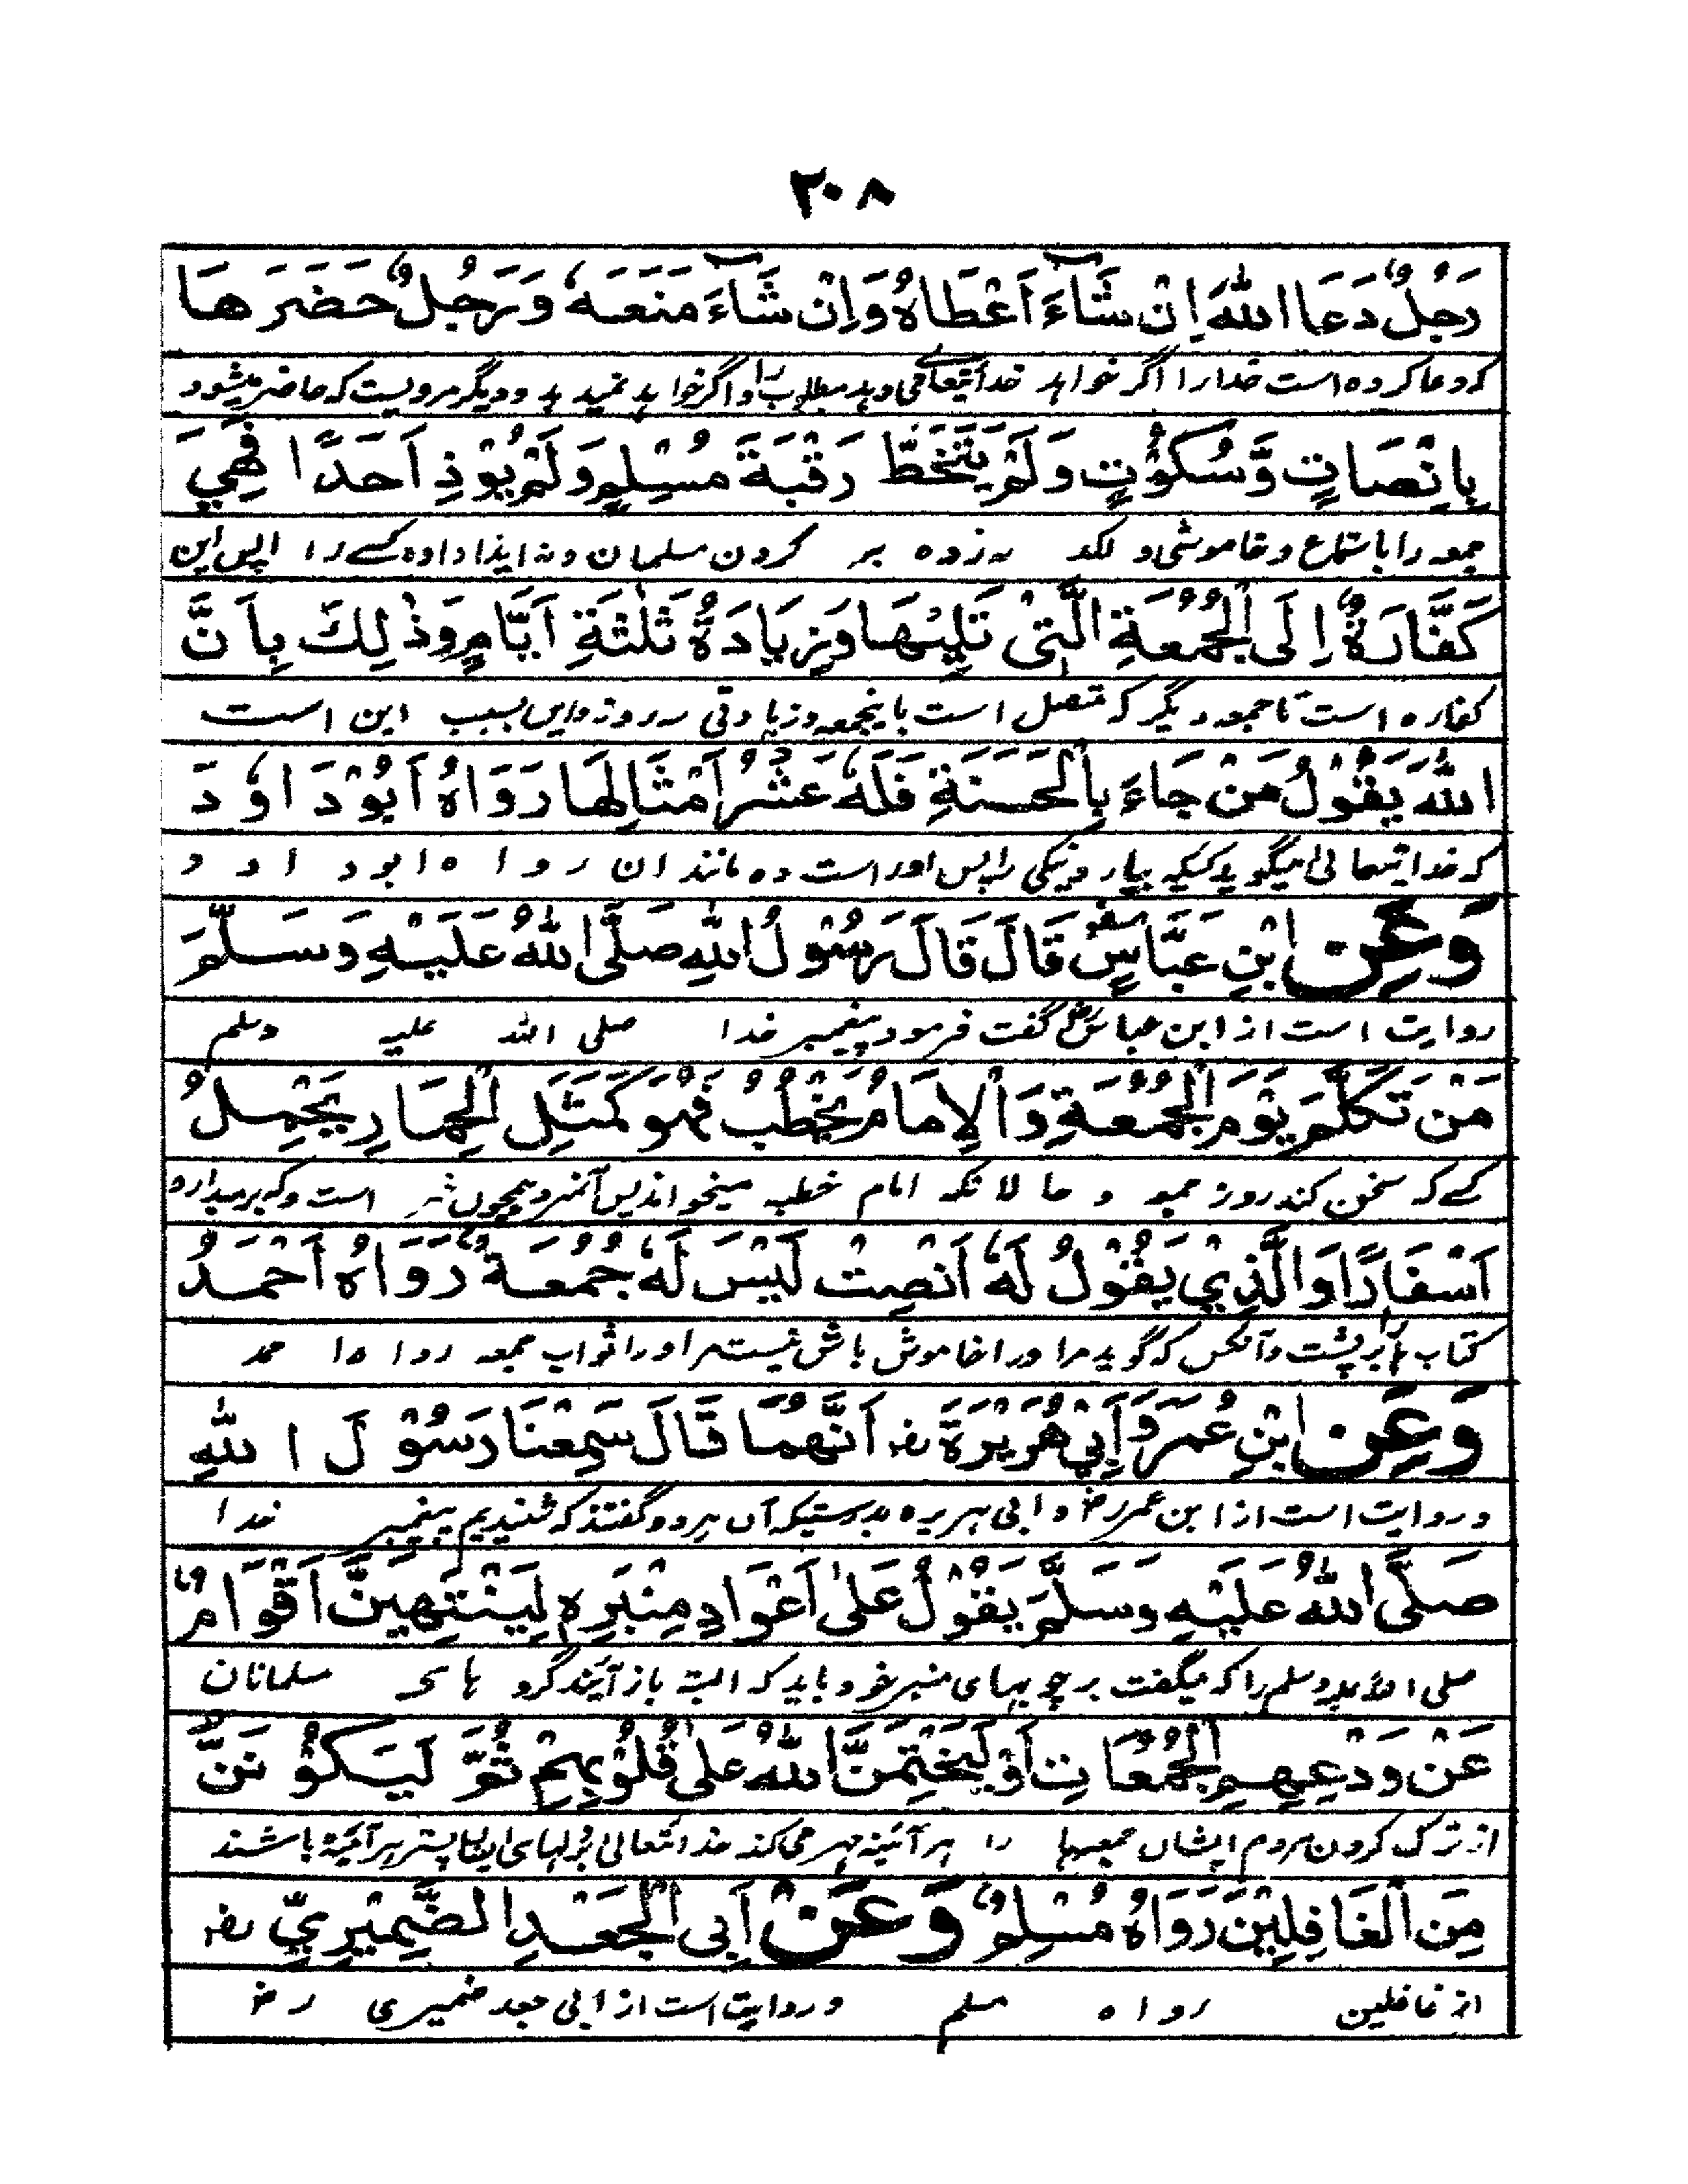 ٣٠٨
رَجُلٌ دَعَا اللّٰهَ اِنْ شَآءَ اَعْطَاهُ وَاِنْ شَآءَ مَنَعَهٗ وَرَجُلٌ حَضَرَهَا
که دعا کرده است خدا را اگر خواهد خدا تعالے می دهد مطلوب را و اگر خواهد نمیدهد و دیگر مردیست که حاضر میشود
بِاِنْصَاتٍ وَّسُكُوْتٍ وَلَمْ يَتَخَطَّ رَقَبَةَ مُسْلِمٍ وَلَمْ يُوْذِ اَحَدًا فَهِيَ
جمعه را با ستماع و خاموشی و لگد نه زده بر گردن مسلمان و نه ایذا داده کسے را پس این
كَفَّارَةٌ اِلَى الْجُمُعَةِ الَّتِىْ تَلِيْهَا وَزِيَادَةُ ثَلٰثَةِ اَيَّامٍ وَذٰلِكَ بِاَنَّ
کفاره است تا جمعه دیگر که متصل است باینجمعه و زیادتی سه روز و این بسبب این است
اللّٰهَ يَقُوْلُ مَنْ جَاءَ بِالْحَسَنَةِ فَلَهٗ عَشْرُ اَمْثَالِهَا رَوَاهُ اَبُوْدَاوٗدَ
که خدا یتعالی میگوید کسیکه بیارد نیکی را پس اورا است ده مانند ان رواه ابوداود
وَعَنِ ابْنِ عَبَّاسٍ رض قَالَ قَالَ رَسُوْلُ اللّٰهِ صَلَّى اللّٰهُ عَلَيْهِ وَسَلَّمَ
روایت است از ابن عباس رض گفت فرمود پیغمبر خدا صلی الله علیه وسلم
مَنْ تَكَلَّمَ يَوْمَ الْجُمُعَةِ وَالْاِمَامُ يَخْطُبُ فَهُوَ كَمَثَلِ الْحِمَارِ يَحْمِلُ
کسے که سخن کند روز جمعه و حالانکه امام خطبه میخواند پس آنمرد همچون خر است که بر میدارد
اَسْفَارًا وَالَّذِيْ يَقُوْلُ لَهٗ اَنْصِتْ لَيْسَ لَهٗ جُمُعَةٌ رَوَاهُ اَحْمَدُ
کتاب ها را بر پشت و آنکس که گوید مراورا خاموش باش نیست مراورا ثواب جمعه رواه احمد
وَعَنِ ابْنِ عُمَرَ وَاَبِيْ هُرَيْرَةَ رض اَنَّهُمَا قَالَ سَمِعْنَا رَسُوْلَ اللّٰهِ
و روایت است از ابن عمر رض و ابی هریره بدرستیکه آن هردو گفتند که شنیدیم پیغمبر خدا
صَلَّى اللّٰهُ عَلَيْهِ وَسَلَّمَ يَقُوْلُ عَلٰى اَعْوَادِ مِنْبَرِهٖ لَيَنْتَهِيَنَّ اَقْوَامٌ
صلی الله علیه وسلم را که میگفت بر چوبهای منبر خود باید که البته باز آیند گروهاے مسلمانان
عَنْ وَدْعِهِمِ الْجُمُعَاتِ اَوْ لَيَخْتِمَنَّ اللّٰهُ عَلٰى قُلُوْبِهِمْ ثُمَّ لَيَكُوْنَنَّ
از ترک کردن مردم ایشان جمعها را هر آئینه مهر می کند خدا تعالی بر دلهای ایشان پستر هر آئینه باشند
مِنَ الْغَافِلِيْنَ رَوَاهُ مُسْلِمٌ وَعَنْ اَبِى الْجَعْدِ الضَّمِيْرِيِّ رض
از غافلین رواه مسلم و روایت است از ابی جعد ضمیری رض